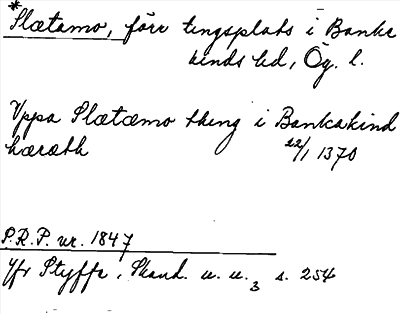 *Slætamo, förr tingsplats i Banke
kinds hd, Ög. l.
Uppa Slætæmo thing i Bankakind
hæræth 22/1 1370
P.R.P. nr. 1847
Jfr Styffe, Skand. u. u.3 s. 254